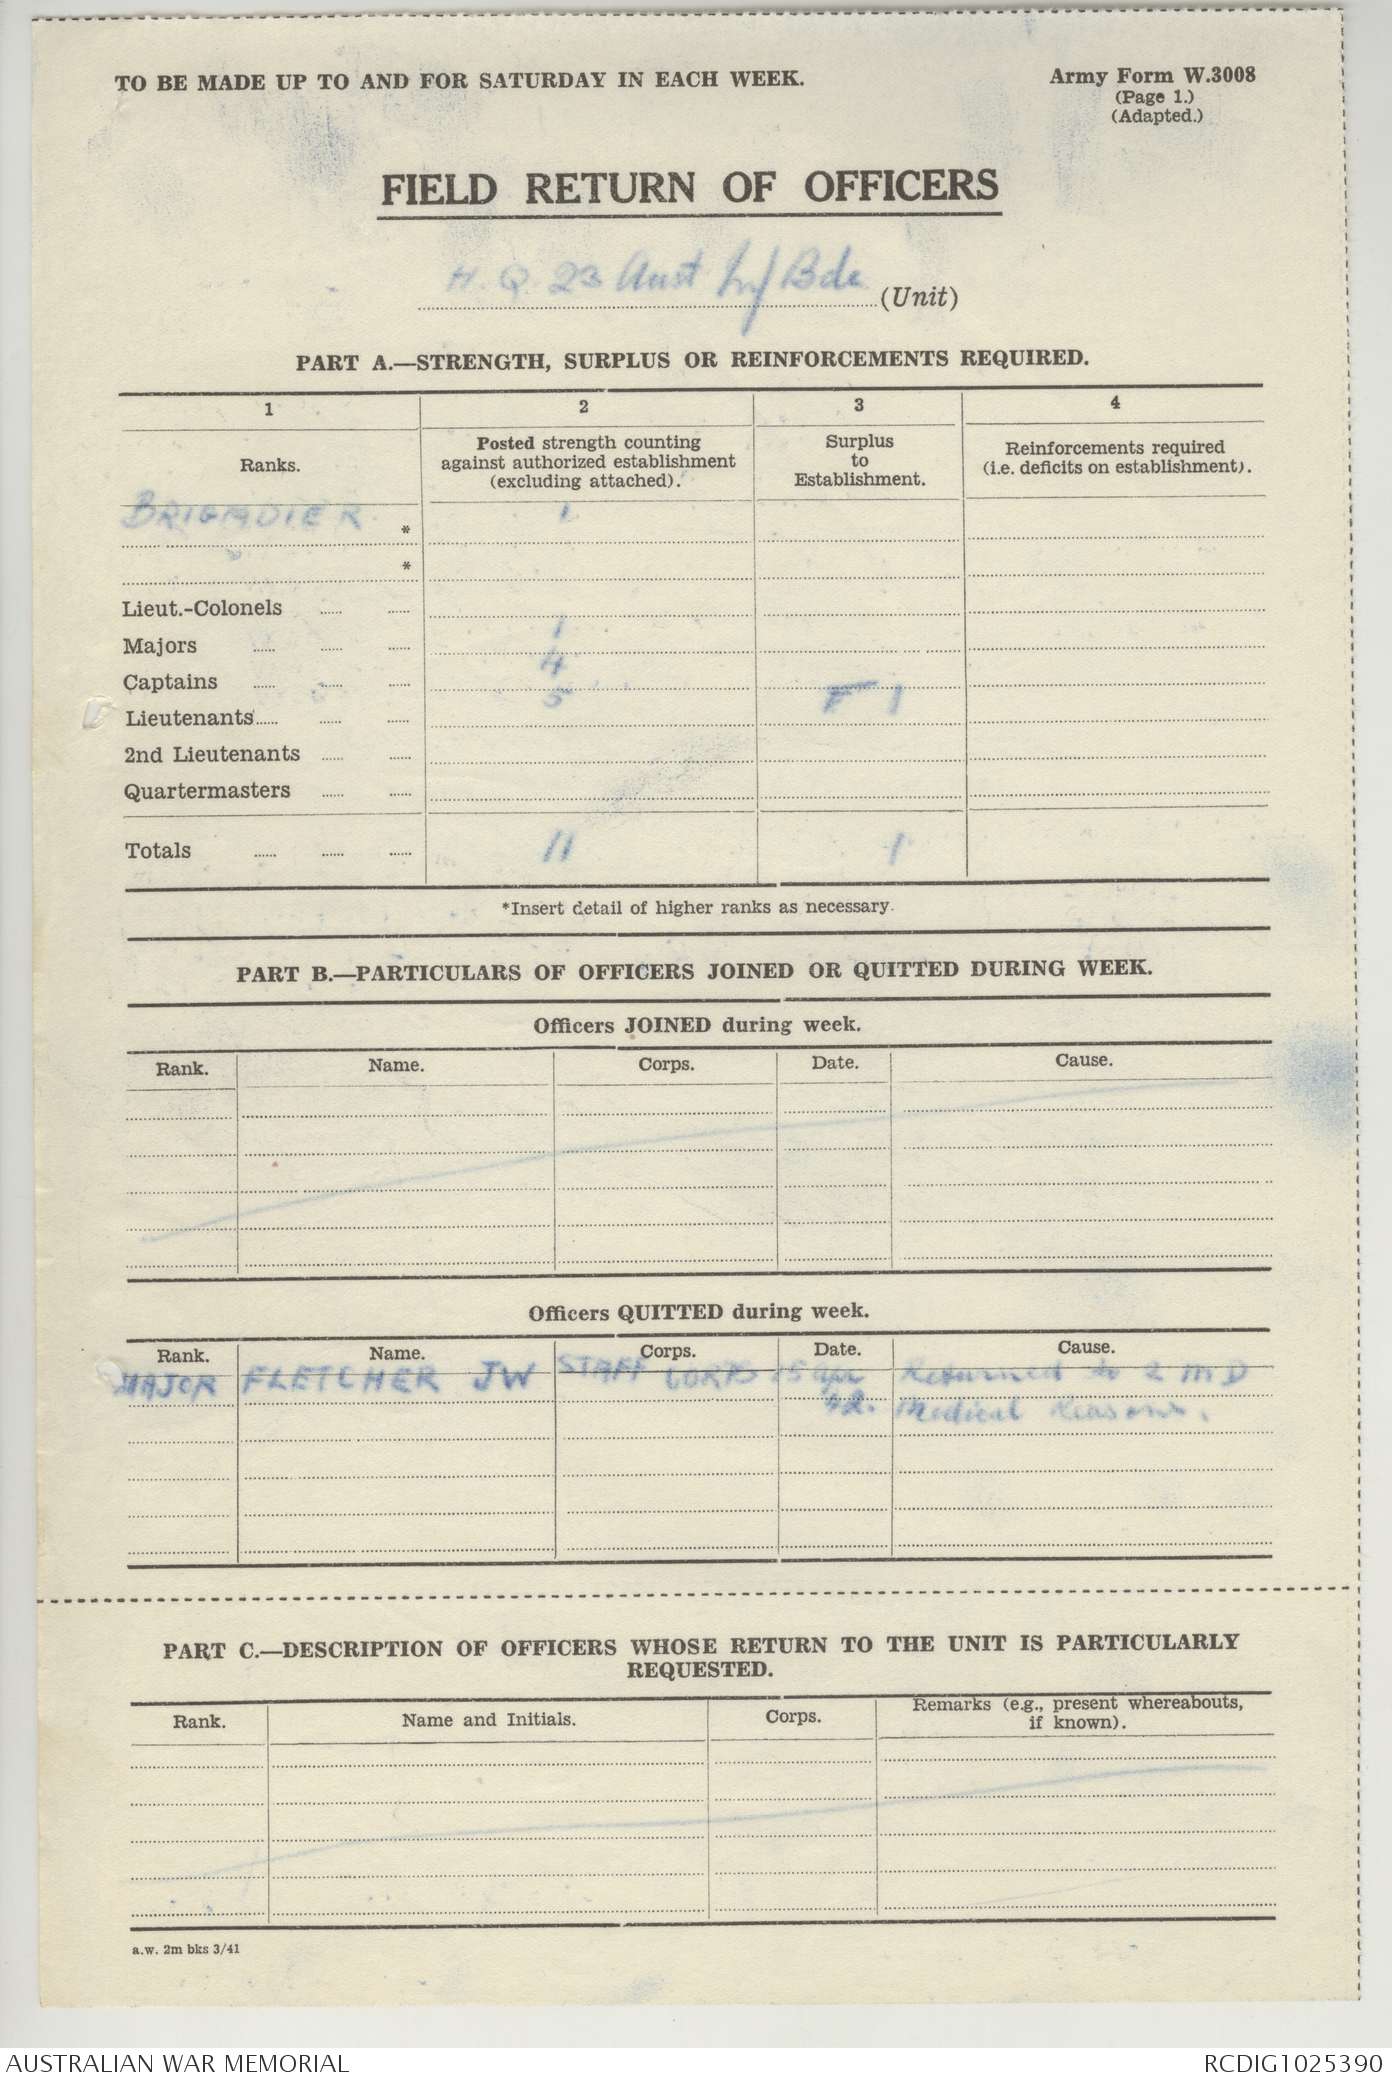 TO BE MADE UP TO AND FOR SATURDAY IN EACH WEEK.
Army Form W.3008
(Page 1.)
(Adapted.)
FIELD RETURN OF OFFICERS
H.Q. 23 Aust Inf Bde (Unit)
PART A.—STRENGTH, SURPLUS OR REINFORCEMENTS REQUIRED.
1 2 3 4
Ranks. Posted strength counting against authorized establishment (excluding attached). Surplus to Establishment. Reinforcements required (i.e. deficits on establishment).
BRIGADIER * 1
*
Lieut.-Colonels
Majors 1
Captains 4
Lieutenants 5 1
2nd Lieutenants
Quartermasters
Totals 11 1
*Insert detail of higher ranks as necessary.
PART B.—PARTICULARS OF OFFICERS JOINED OR QUITTED DURING WEEK.
Officers JOINED during week.
Rank. Name. Corps. Date. Cause.
Officers QUITTED during week.
Rank. Name. Corps. Date. Cause.
MAJOR FLETCHER JW STAFF CORPS 15 Apr Returned to 2 MD
42. Medical Reasons.
PART C.—DESCRIPTION OF OFFICERS WHOSE RETURN TO THE UNIT IS PARTICULARLY
REQUESTED.
Rank. Name and Initials. Corps. Remarks (e.g., present whereabouts, if known).
a.w. 2m bks 3/41
AUSTRALIAN WAR MEMORIAL
RCDIG1025390